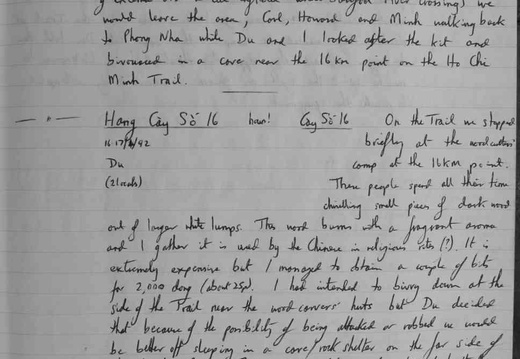 would leave the area, Carl, Howard and Minh walking back
to Phong Nha while Du and I looked after the kit and
bivouaced in a cave near the 16 km point on the Ho Chi
Minh Trail.
Hang Cây Số 16 Cay Số 16 On the Trail we stopped
briefly at the woodcutters'
Du camp at the 16KM point.
(2 leads) These people spend all their time
chiselling small pieces of dark wood
out of larger white lumps. This wood burns with a fragrant aroma
and I gather it is used by the Chinese in religious rites (?). It is
extremely expensive but I managed to obtain a couple of bits
for 2,000 dong (about 25p). I had intended to bivvy down at the
side of the Trail near the wood carvers' huts but Du decided
that because of the possibility of being attacked or robbed we would
be better off sleeping in a cave/rock shelter on the far side of